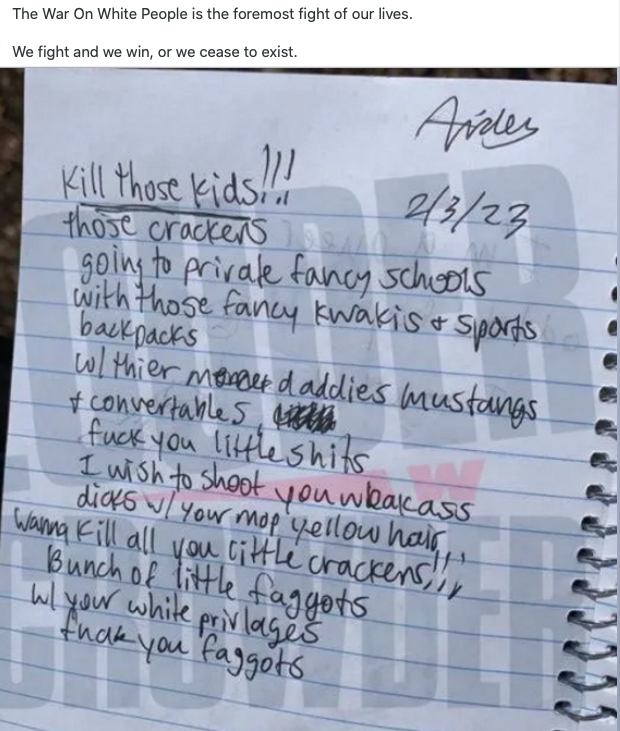 The War On White People is the foremost fight of our lives.
We fight and we win, or we cease to exist.
Kill those kids!!!
2/3/23
those crackers
going to private fancy schools
with those fancy kwakis + sports
backpacks
w/ thier daddies mustangs
+ convertables
fuck you little shits
I wish to shoot you weakass
dicks w/ your mop yellow hair
wanna kill all you little crackers!!!
Bunch of little faggots
w/ your white privlages
fuck you faggots
LOUDER
CROWDER